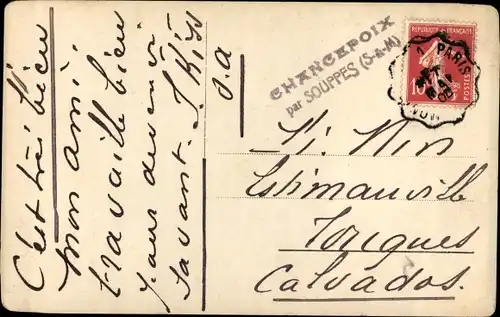 C'est très bien
mon ami
travaille bien
pour devenir
savant.
CHANCEPOIX
par SOUPPES (S-&-M)
REPUBLIQUE FRANCAISE
10
POSTES
PARIS
Estimauville
Tonques
Calvados.